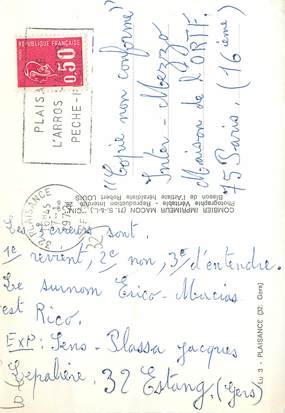 REPUBLIQUE FRANÇAISE
0.50
PLAISA
L'ARROS
PECHE-
PLAISANCE
32
"Copie non conforme"
Inter-Mezzo
Maison de l'ORTF.
75 Paris. (16ème)
COMBIER IMPRIMEUR MACON (71.S.-&-L.) "CIM"
Photographie Véritable - Reproduction Interdite
Blason de l'Artiste héraldiste Robert LOUIS
Lu 3 - PLAISANCE (32. Gers)
Les Erreurs sont
1e revient, 2e non, 3e d'entendre.
Le surnom Erico-Macias
est Rico.
Exp: Sens-Plassa Jacques
Lo Lepalière. 32 Estang. (Gers)